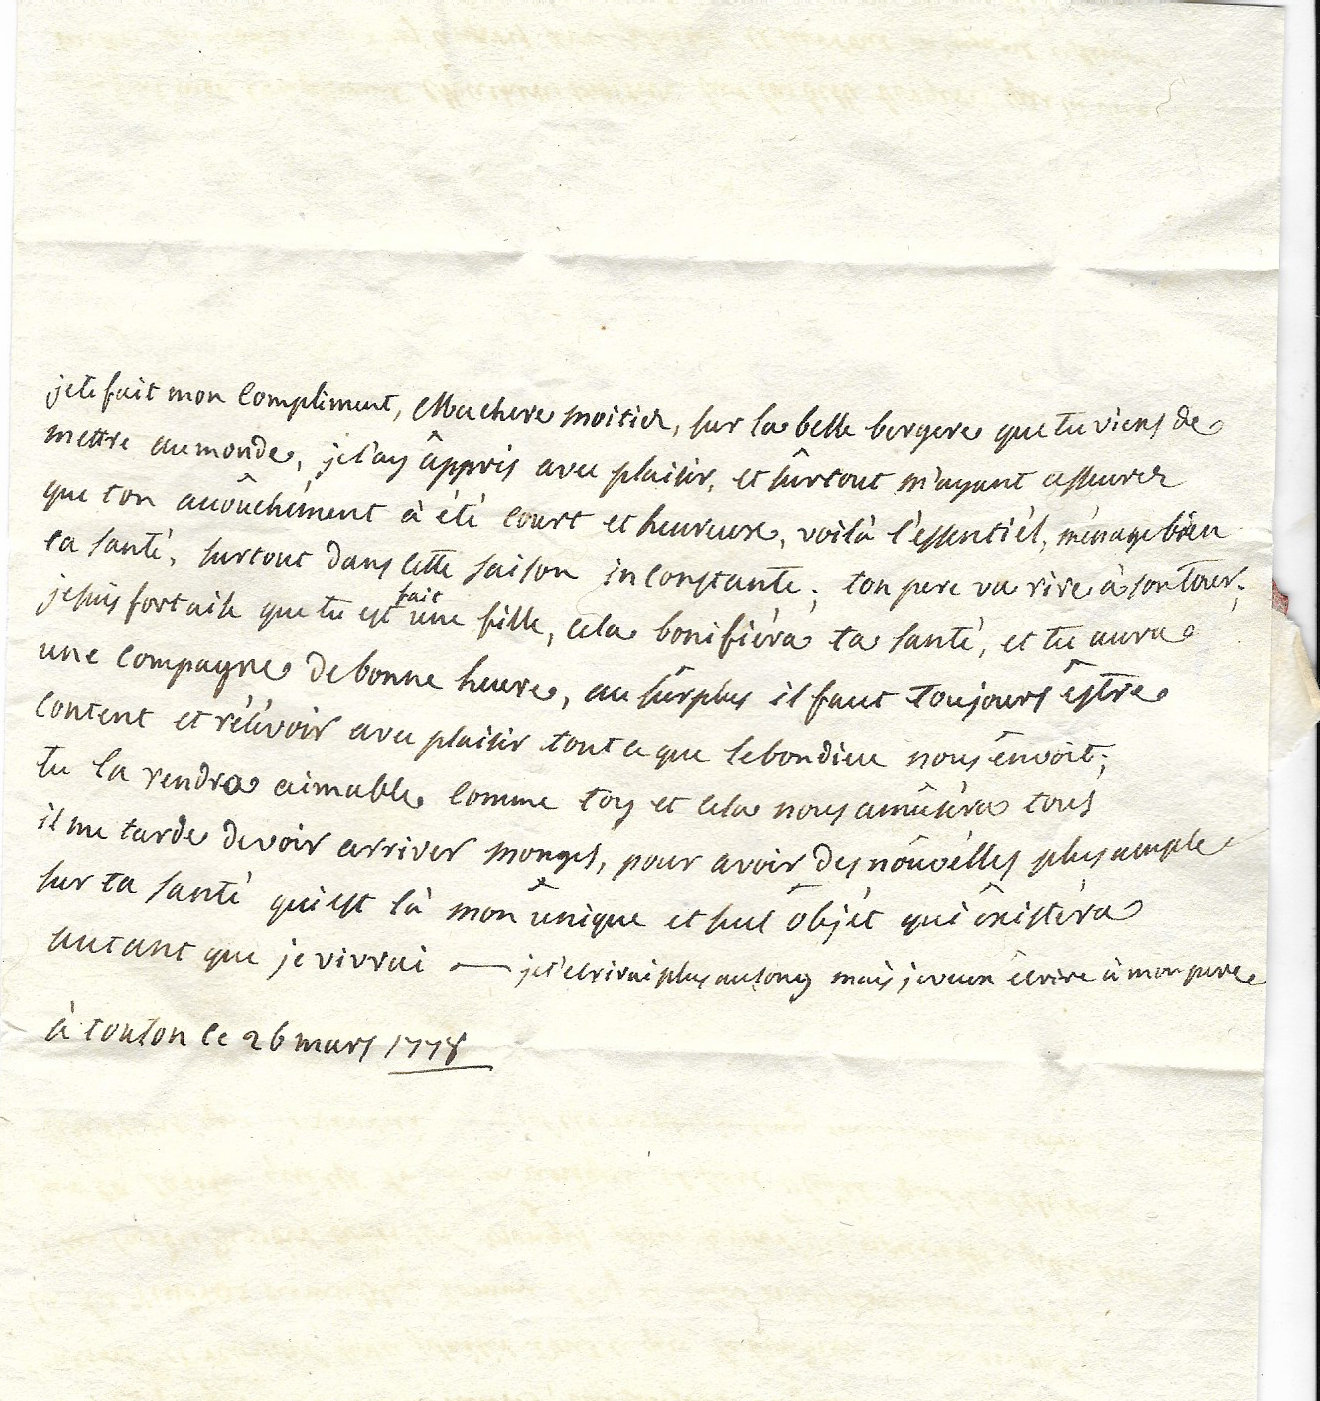 je te fait mon Compliment, Ma chere moitier, sur la belle bergere que tu viens de
mettre au monde, je l'ay âppris avec plaisir, et sûrtout m'ayant asseurer
que ton acôuchément à été Court et heureux, voilà l'éssentiél, ménage bien
ta santé, surtout dans Cette saison inConstante; ton pere va rire à son tour;
je suis fort aise que tu est fait une fille, Céla bonifiéra ta santé, et tu aura
une Compagne de bonne heure, au sûrplus il faut toujours êstre
Content et réçévoir avec plaisir tout ce que le bon dieu nous envoit;
tu la rendra aimable Comme toy et Cela nous amûséra tous
il me tarde de voir arriver monges, pour avoir des nôuvélles plus ample
sur ta santé qui est là mon ûnique et seul ôbjét qui êxistéra
autant que je vivrai — je t'écrirai plus au long mais je veux écrire à mon pere
à toulon le 26 mars 1778